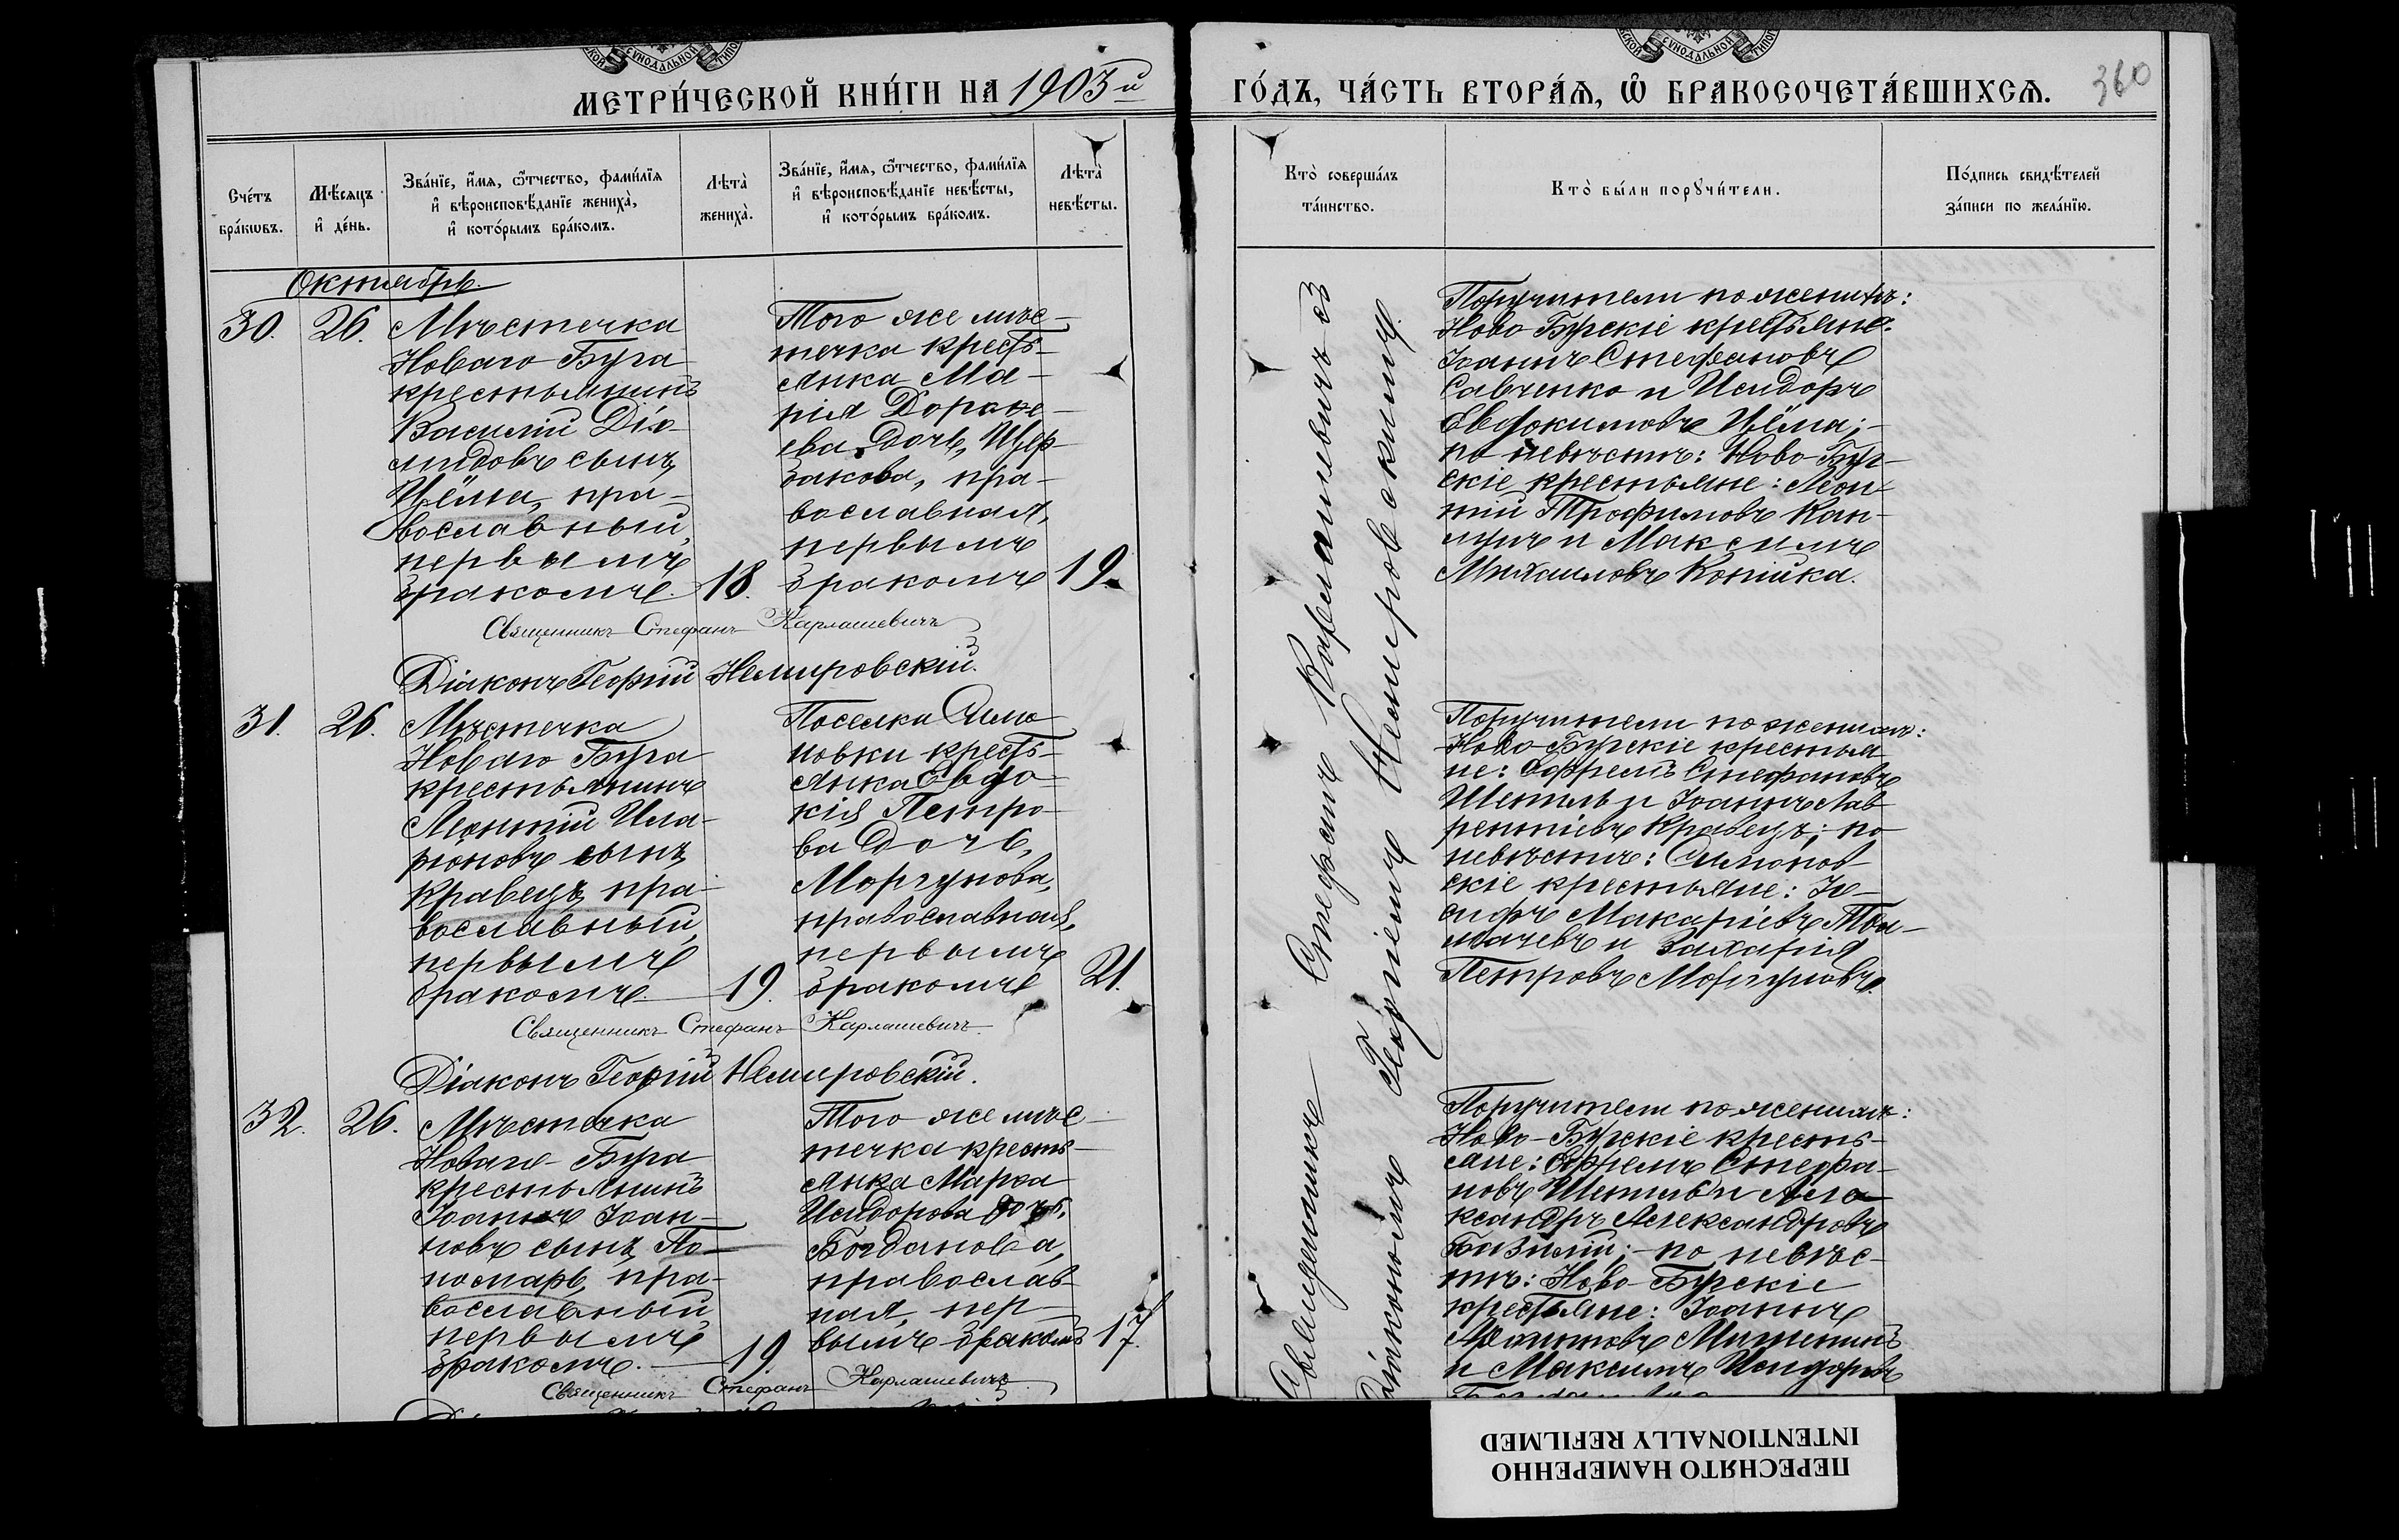 МЕТРИ́ЧЕСКОЙ КНИ́ГИ НА 1903й
ГО́ДЪ, ЧА́СТЬ ВТОРА́Ѧ, Ѽ БРАКОСОЧЕТА́ВШИХСѦ.
360
Сче́тъ бра́кѡвъ.
Мѣ́сяцъ и҆ де́нь.
Зва́нїе, и҆́мя, ѻ҆́тчество, фами́лїя и҆ вѣроисповѣ́данїе жениха̀, и҆ кото́рымъ бра́комъ.
Лѣта̀ жениха̀.
Зва́нїе, и҆́мя, ѻ҆́тчество, фами́лїя и҆ вѣроисповѣ́данїе невѣ́сты, и҆ кото́рымъ бра́комъ.
Лѣта̀ невѣ́сты.
Кто̀ соверша́лъ та́инство.
Кто̀ бы́ли порꙋчи́тели.
По́дпись свидѣ́телей за́писи по жела́нїю.
Октябрь.
30.
26.
Мѣстечка
Новаго Буга
крестьянинъ
Василій Діо-
мидовъ сынъ
Цёма, пра-
вославный,
первымъ
бракомъ.
18.
Того же мѣс-
течка кресть-
янка Ма-
рія Дорофе-
ева дочь, Щер-
бакова, пра-
вославная,
первымъ
бракомъ
19.
Поручители по женихѣ:
Ново Бугскіе крестьяне:
Іоаннъ Стефановъ
Савченко и Исидоръ
Евдокимовъ Цёма;-
по невѣстѣ: Ново Буг-
скіе крестьяне: Леон-
тій Трофимовъ Кап-
лунъ и Максимъ
Михаиловъ Копійка.
Священникъ Стефанъ Карлашевичъ
Діаконъ Георгій Немировскій.
31.
26.
Мѣстечка
Новаго Буга
крестьянинъ
Леонтій Ила-
ріоновъ сынъ
Кравецъ, пра-
вославный,
первымъ
бракомъ.
19.
Поселка Симо
новки кресть-
янка Евдо-
кія Петро-
ва дочь,
Моргунова,
православная,
первымъ
бракомъ
21.
Поручители по женихѣ:
Ново-Бугскіе крестья-
не: Ефремъ Стефановъ
Шепиль и Іоаннъ Лав-
рентіевъ Кравецъ; по
невѣстѣ: Симонов-
скіе крестьяне: Іо-
сифъ Макаріевъ Тол-
мачевъ и Захарія
Петровъ Моргуновъ.
Священникъ Стефанъ Карлашевичъ
Діаконъ Георгій Немировскій.
32.
26.
Мѣстечка
Новаго Буга
крестьянинъ
Іоаннъ Іоан-
новъ сынъ, По-
номарь, пра-
вославный,
первымъ
бракомъ.
19.
Того же мѣс-
течка кресть-
янка Марфа
Исидорова дочь,
Богданова,
православ-
ная, пер-
вымъ бракомъ
17.
Поручители по женихѣ:
Ново-Бугскіе кресть-
яне: Ефремъ Стефа-
новъ Шепиль и Але-
ксандръ Александровъ
Базилій;- по невѣс-
тѣ: Ново Бугскіе
крестьяне: Іоаннъ
и Максимъ Исидоровъ
Священникъ Стефанъ Карлашевичъ
Священникъ Стефанъ Карлашевичъ съ
Діакономъ Георгіемъ Немировскимъ.
ПЕРЕСНЯТО НАМЕРЕННО
INTENTIONALLY REFILMED